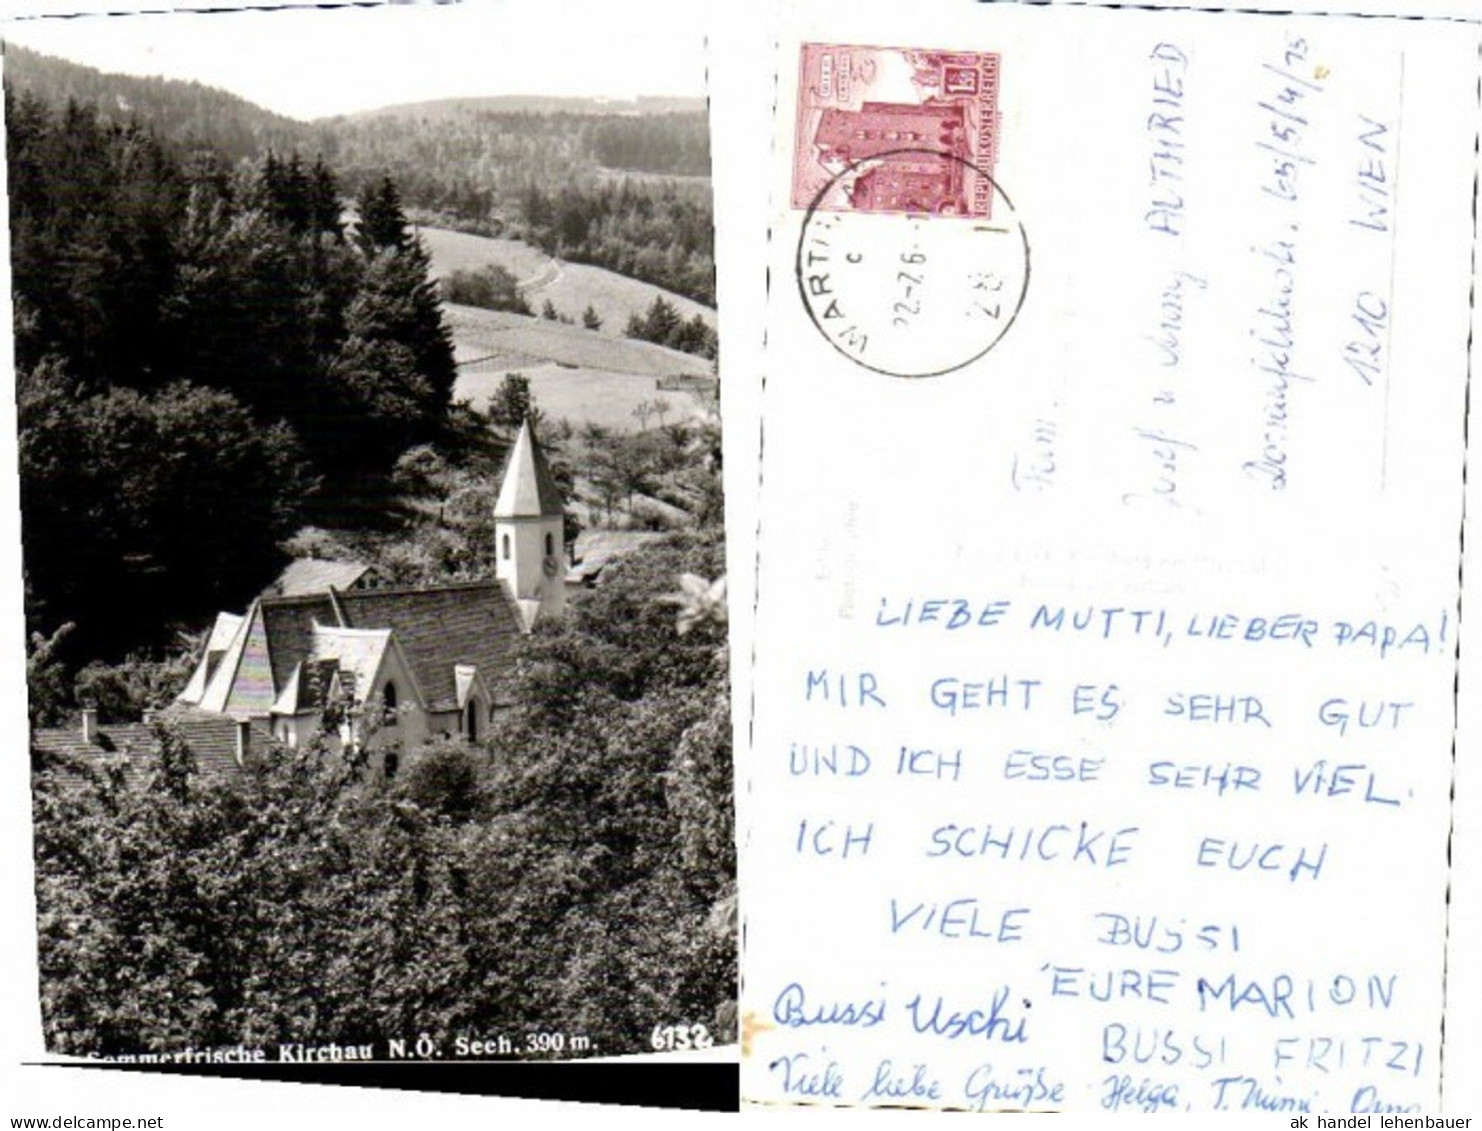 Sommerfrische Kirchau N.Ö. Seeh. 390 m.
6132
1.50
REPUBLIK ÖSTERREICH
WARTH
c
22.-7.6
28
Fam.
Josef u ALTHRIED
65/5/4/13
1210 WIEN
LIEBE MUTTI, LIEBER PAPA!
MIR GEHT ES SEHR GUT
UND ICH ESSE SEHR VIEL.
ICH SCHICKE EUCH
VIELE BUSSI
EURE MARION
Bussi Uschi
BUSSI FRITZI
Viele liebe Grüße Helga, T. Mimi, Oma
ak handel lehenbauer